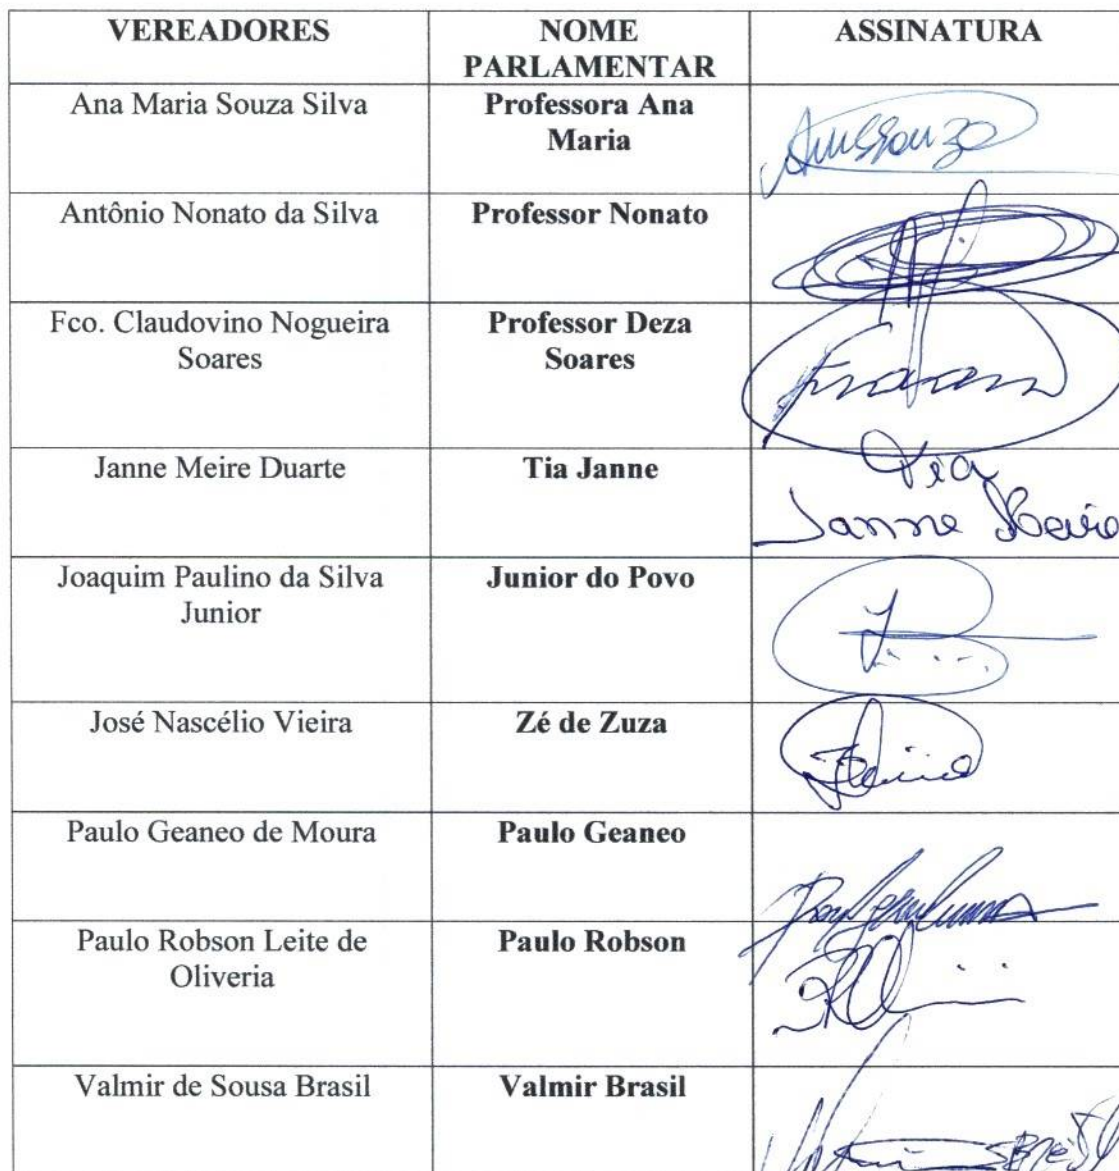 VEREADORES NOME PARLAMENTAR ASSINATURA
Ana Maria Souza Silva Professora Ana Maria
Antônio Nonato da Silva Professor Nonato
Fco. Claudovino Nogueira Soares Professor Deza Soares
Janne Meire Duarte Tia Janne Tia Janne Meire
Joaquim Paulino da Silva Junior Junior do Povo
José Nascélio Vieira Zé de Zuza
Paulo Geaneo de Moura Paulo Geaneo
Paulo Robson Leite de Oliveria Paulo Robson
Valmir de Sousa Brasil Valmir Brasil